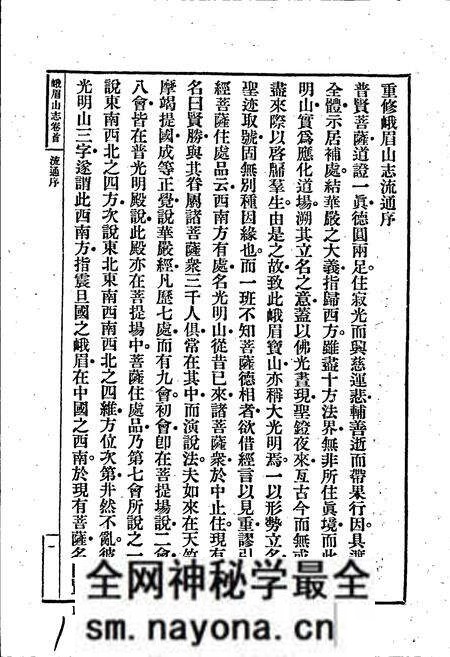 重修峨眉山志流通序
普賢菩薩道證一眞德圓兩足住寂光而興慈運悲輔善逝而帶果行因具
全體示居補處結華嚴之大義指歸西方雖盡十方法界無非所住眞境而此
明山實爲應化道場溯其立名之意蓋以佛光晝現聖鐙夜來亙古今而無或
盡來際以啓牖羣生由是之故致此峨眉寶山亦稱大光明焉一以形勢立名
聖迹取號固無別種因緣也而一班不知菩薩德相者欲借經言以見重謬引
經菩薩住處品云西南方有處名光明山從昔已來諸菩薩衆於中止住現有
名曰賢勝與其眷屬諸菩薩衆三千人俱常在其中而演說法夫如來在天竺
摩竭提國成等正覺說華嚴經凡歷七處而有九會初會卽在菩提場說二會
八會皆在普光明殿說此殿亦在菩提場中菩薩住處品乃第七會所說之一
說東南西北之四方次說東北東南西南西北之四維方位次第井然不亂彼
光明山三字遂謂此西南方指震旦國之峨眉在中國之西南於現有菩薩名
峨眉山志卷首 流通序 一
全网神秘学最全
sm.nayona.cn